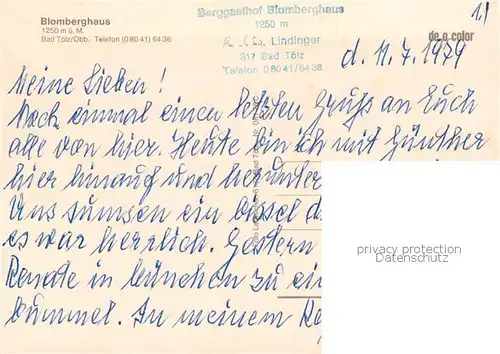 Blomberghaus
1250 m ü. M.
Bad Tölz/Obb. Telefon (0 80 41) 64 36
Berggasthof Blomberghaus
1250 m
Lindinger
817 Bad Tölz
Telefon 08041/6436
1)
de o color
d. 11.7.1979
Meine Lieben!
Noch einmal einen letzten Gruß an Euch
alle von hier. Heute bin ich mit Günther
hier hinauf und herunter
Uns sumsen ein bissel
es war herrlich. Gestern
Renate in München zu
bummel. In meinem
privacy protection
Datenschutz